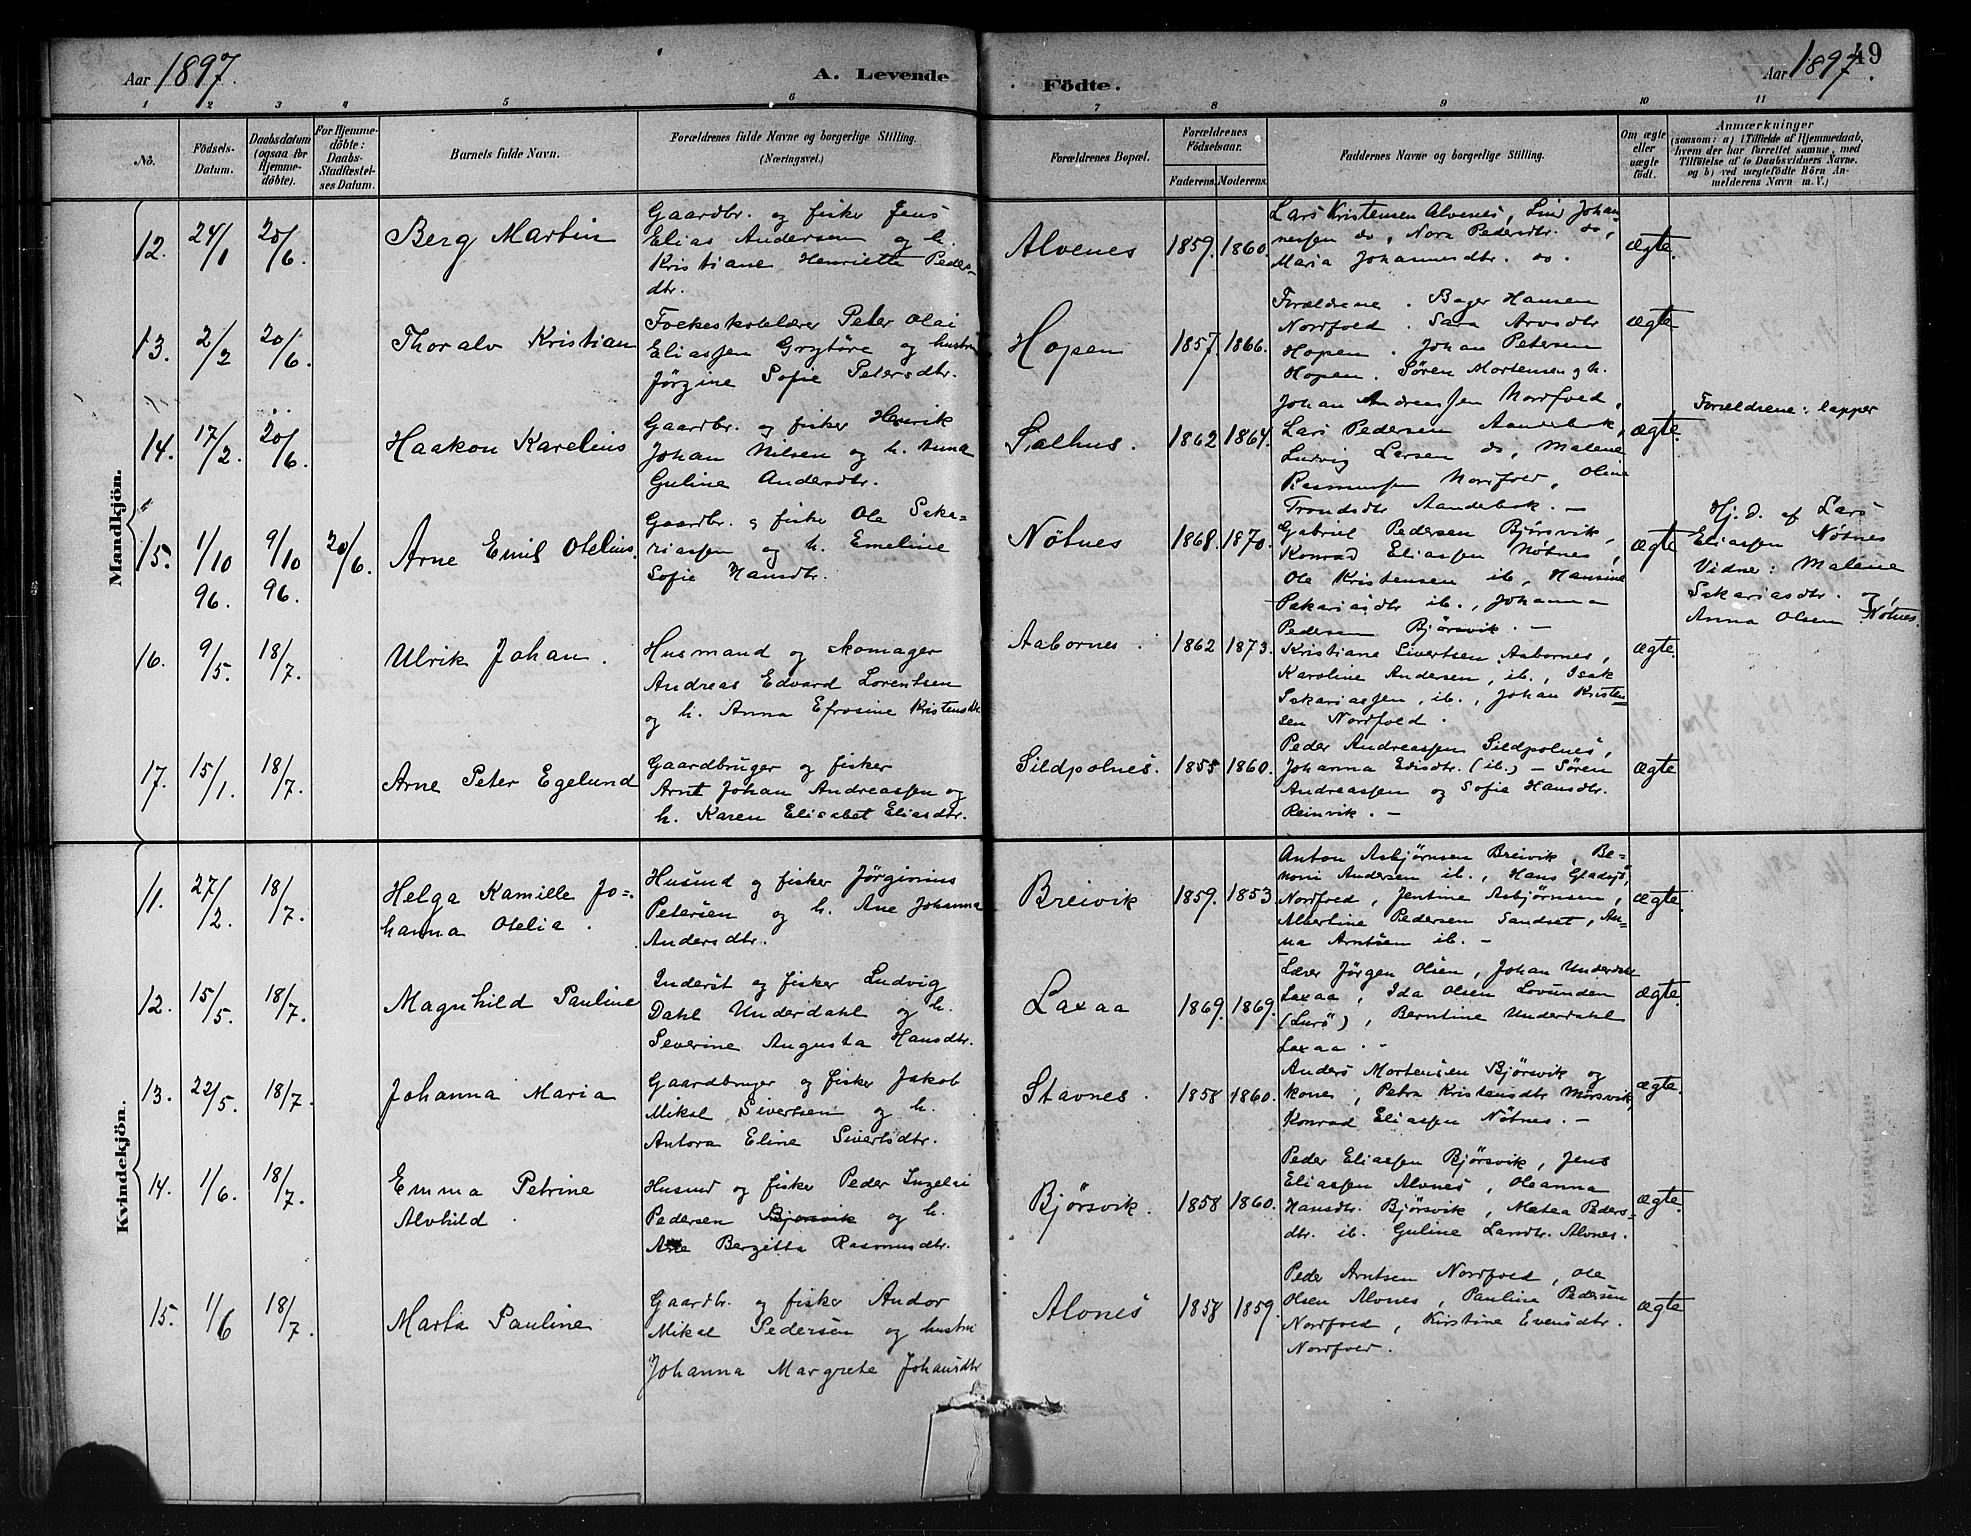 Aar 1897.
A. Levende
Födte.
Aar 1897.
49
1 2 3 4 5 6 7 8 9 10 11
No.
Födsels-
Datum.
Daabsdatum
(ogsaa for
Hjemme-
döbte).
For Hjemme-
döbte:
Daabs-
Stadfæstel-
ses Datum.
Barnets fulde Navn.
Forældrenes fulde Navne og borgerlige Stilling.
(Næringsvei.)
Forældrenes Bopæl.
Forældrenes
Födselsaar.
Faderens. Moderens.
Faddernes Navne og borgerlige Stilling.
Om ægte
eller
uægte
födt.
Anmærkninger
(saasom: a) i Tilfælde af Hjemmedaab,
hvem der har forrettet samme, med
Tilföielse af to Daabsvidners Navne.
og b) ved uægtefödte Börn An-
melderens Navn m. V.)
Mandkjön.
12. 24/1 20/6 Berg Martin
Gaardbr. og fisker Jens
Elias Andersen og h.
Kristiane Henriette Peders-
dtr.
Alvenes 1859. 1860.
Lars Kristensen Alvenes, Johan-
nessen do, Nora Pedersdtr. do,
Maria Johannesdtr. do.
ægte.
13. 2/2 20/6 Thoralv Kristian
Folkeskolelærer Peter Olai
Eliassen Grytöre og hustru
Jörgine Sofie Petersdtr.
Hopen 1857. 1866.
Forældrene. Bager Hansen
Nordfold. Sara Arvsdtr
Hopen. Johan Petersen
Hopen. Sören Mortensen og h.
ægte
14. 17/2. 20/6 Haakon Karelius
Gaardbr. og fisker Henrik
Johan Nilsen og h. Anna
Guline Andersdtr.
Salhus. 1862 1864.
Johan Andreassen Nordfold,
Lars Pedersen Aandebak,
Ludvig Larsen do, Malene
Rasmussen Nordfold, Oline
Trondsdtr Aandebak. —
ægte.
Forældrene: lapper
15. 1/10 96. 9/10 96. 20/6. Arne Emil Otelius.
Gaardbr. g fisker Ole Saka-
riassen og h. Emeline
Sofie Hansdtr.
Nötnes 1868. 1870.
Gabriel Pedersen Björsvik,
Konrad Eliassen Nötnes,
Ole Kristensen ib, Hansine
Sakariasdtr ib., Johanna
Pedersen Björsvik. —
ægte
Hj. d. af Lars
Eliassen Nötnes
Vidner: Malene
Sakariasdtr. og
Anna Olsen Nötnes.
16. 9/5. 18/7. Ulrik Johan.
Husmand og skomager
Andreas Edvard Lorentsen
og h. Anna Efrosine Kristensdtr
Aabornes. 1862 1873.
Kristiane Sivertsen Aabornes,
Karoline Andersen, ib., Isak
Sakariassen, ib., Johan Kristen-
sen Nordfold.
ægte.
17. 15/1. 18/7. Arne Peter Egelund
Gaardbruger og fisker
Arnt Johan Andreassen og
h. Karen Elisabet Eliasdtr.
Sildpolnes. 1855 1860.
Peder Andreassen Sildpolnes,
Johanna Edisdtr. (ib.) — Sören
Andreassen og Sofie Hansdtr.
Reinvik. —
ægte
Kvindekjön.
11. 27/2. 18/7. Helga Kamille Jo-
hanna Otelia.
Husmd og fisker Jörginius
Petersen og h. Ane Johanna
Andersdtr.
Breivik 1859. 1853
Anton Asbjörnsen Breivik, Be-
noni Andersen ib., Hans Gladsö,
Nordfold, Jentine Asbjörnsen,
Albertine Pedersen Sandset, An-
na Arntsen ib. —
ægte.
12. 15/5. 18/7. Magnhild Pauline
Inderst og fisker Ludvig
Dahl Underdahl og h.
Severine Augusta Hansdtr.
Laxaa 1869. 1869.
Lærer Jörgen Olsen, Johan Underdahl
Laxaa, Ida Olsen Lovunden
(Lurö), Berntine Underdahl
Laxaa. -
ægte.
13. 22/5. 18/7. Johanna Maria
Gaardbruger og fisker Jakob
Mikal Sivertsen og h.
Antora Eline Sivertsdtr.
Stavnes. 1858 1860.
Anders Mortensen Björsvik og
kones, Petra Kristensdtr Mörsvik,
Konrad Eliassen Nötnes. —
ægte.
14. 1/6. 18/7. Emma Petrine
Alvhild.
Husmd og fisker Peder Ingelai
Pedersen Bjorsvik og h.
Ane Bergitta Rasmusdtr.
Björsvik. 1858 1860.
Peder Eliassen Björsvik, Jens
Eliassen Alvnes, Oleanna
Hansdtr. Björsvik, Matea Peders-
dtr. ib. Guline Larsdtr. Alvnes.
ægte.
15. 1/6 18/7. Marta Pauline
Gaardbr. og fisker Andor
Mikal Pedersen og hustru
Johanna Margrete Johansdtr
Alvnes 1858 1859.
Peder Arntsen Nordfold, Ole
Olsen Alvnes, Pauline Pedersen
Nordfold, Kirstine Evensdtr.
Nordfold.
ægte